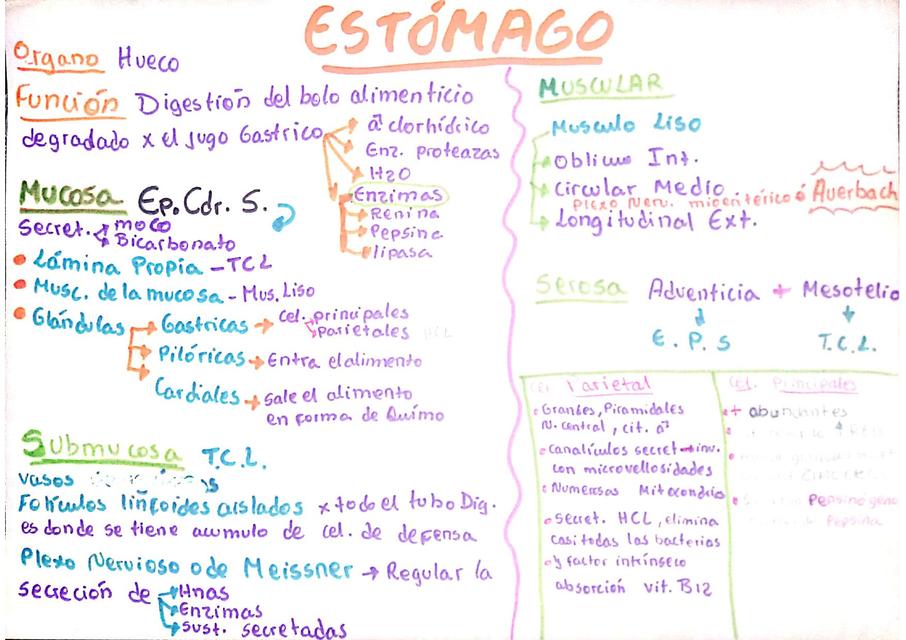 ESTÓMAGO
Organo Hueco
Función Digestión del bolo alimenticio
degradado x el jugo Gastrico
a° clorhídrico
Enz. proteazas
H2O
Enzimas
Renina
Pepsina
lipasa
Mucosa Ep. Cdr. S.
Secret. moco
Bicarbonato
Lámina Propia - TCL
Musc. de la mucosa - Mus. Liso
Glándulas
Gastricas → cel. principales
parietales HCL
Pilóricas → Entra el alimento
Cardiales → sale el alimento
en forma de Quimo
Submucosa T.C.L.
vasos
Folículos linfoides aislados x todo el tubo Dig.
es donde se tiene acumulo de cel. de defensa
Plexo Nervioso o de Meissner → Regular la
secreción de
Hnas
Enzimas
Sust. secretadas
MUSCULAR
Musculo Liso
Oblicuo Int.
Circular Medio
Plexo Nerv. mioentérico ó Auerbach
Longitudinal Ext.
Serosa Adventicia + Mesotelio
E. P. S
T.C.L.
Cel Parietal
Grandes, Piramidales
N. central, cit. a°
canalículos secret → inv.
con microvellosidades
Numerosas Mitocondrias
secret. HCL, elimina
casi todas las bacterias
y factor intrínseco
absorción vit. B12
Cel. Principales
+ abundantes
Pepsinógeno
Pepsina